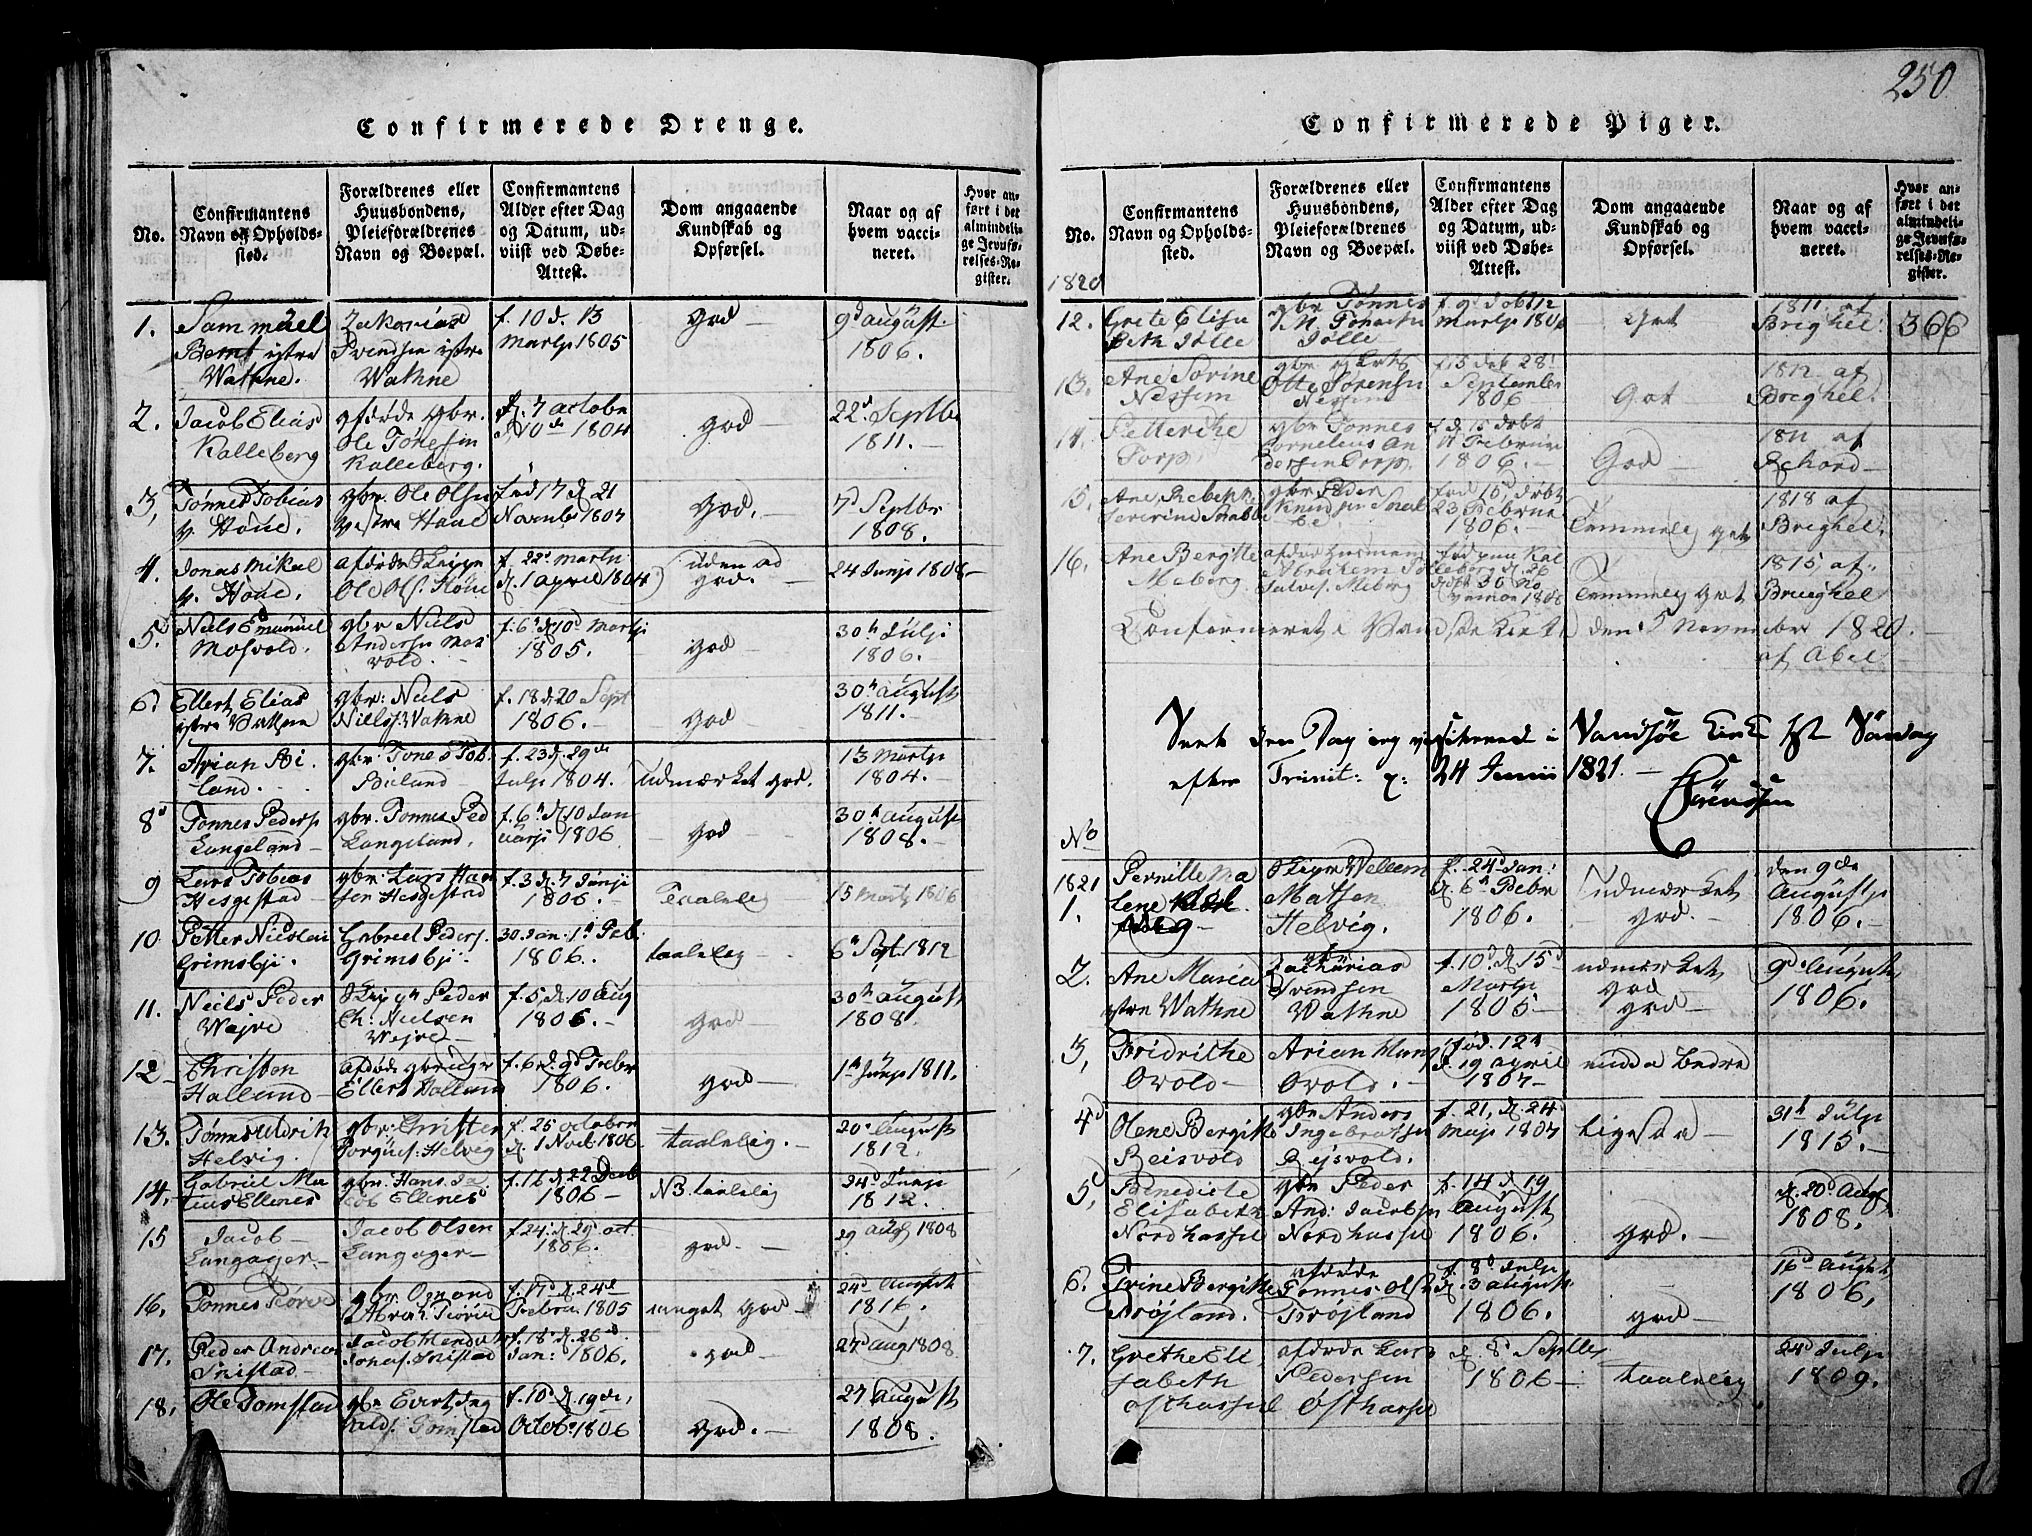 250
Confirmerede Drenge.
No.
Confirmantens
Navn og Opholds-
sted.
Forældrenes eller
Huusbondens,
Pleieforældrenes
Navn og Boepæl.
Confirmantens
Alder efter Dag
og Datum, ud-
viist ved Døbe-
Attest.
Dom angaaende
Kundskab og
Opførsel.
Naar og af
hvem vacci-
neret.
Hvor an-
ført i det
almindeli-
ge Jevnfø-
relses-Re-
gister.
1.
Sammüel
Bernt ystre
Wathne.
Zakarias
Svendsen ystre
Wathne
f. 10 d. 13
Martp 1805
god
9d august
1806.
2.
Jacob Elias
Kalleberg
afdøde gbr.
Ole Tønesen
Kalleberg.
f. 7 octobr
d. 10de 1804
god
22d Septbr
1811.
3,
Tønnes Tobias
v. Høue.
gbr. Ole Olsen
vestre Haue
fød 17 d. 21
Novembr 1804
god.
7d Septbr
1808.
4.
Jonas Mikal
v. Høue.
afdøde
Ole Ols. Høue
f. 22d martii
d. 1 april 1804
uden ad
god.
24 Junji 1808
5
Niels Emanuel
Mosvold.
gbr Niels
Andersen Mos
vold.
f. 6 d. 10d Martji
1805.
god
30h Julji
1806.
6.
Ellert Elias
ystre Vathne
gbr: Niels
Niels. Wathne
f. 18 d. 20 Sept
1806.
god
30h august
1811.
7.
Arian Bi-
land.
gbr. Tones Tob.
Biland
f. 23 d. 29de
Julp 1804.
udmærket god.
13 Martp
1804.
8
Tonnes Peders
Langeland
gbr. Tonnes Ped
Langeland.
f. 6 d. 10 Jan
uarji 1806
god
30h august
1808.
9
Lars Tobias
Hesgestad
gbr. Lars Han
sen Hesgestad
f. 3 d. 7 Junji
1806.
Taaleleg
15 Martp 1806
10
Petter Nicolai
Grimsbji.
Gabriel Peders.
Grimsbji.
30 Jan. 1d Feb.
1806.
taaleleg
6h Spt. 1812
11.
Neils Peder
Wejre
Peder
Ch: Nielsen
Wejre
f. 5. d. 10 aug
1806.
god
30h august
1808.
12
Christen
Halland
afdøde gbruger
Ellert Halland
f. 6 d. 9d Febr
1806.
god
1h Junji 1811.
13.
Tønnes Udrik
Helvig.
gbr: Christen
Torgius: Helvig
f. 26 octobr
d. 1 Novb. 1806
taaleleg.
20d August
1812.
14.
Gabriel Ma
tius Ellenes
gbr. Hans Ja
cob Ellenes
f. 16 d. 22 Decb
1806
NB. taaleleg
24d Junji
1812
15
Jacob
Langager
Jacob Olsen
Langager
f. 24 d. 29d oct
1806.
god.
29 aug 1808
16.
Tonnes Røree
gbr. Osmond
Abrah. Rørve
f. 17d d. 24d
Febru. 1805
meget god
24d August
1816.
17.
Peder Andreas
Snistad
Jacob
Jonas. Snistad
f. 18 d. 26d
Jan: 1806.
god
27d aug 1808
18.
Ole Tomstad
gbr Evert Ing
valds. Tomstad
f. 10d d. 19de
Octob. 1806
god.
27 August
1808.
Confirmerede Piger.
No.
Confirmantens
Navn og Opholds-
sted.
Forældrenes eller
Huusbondens,
Pleieforældrenes
Navn og Boepæl.
Confirmantens
Alder efter Dag
og Datum, ud-
viist ved Døbe-
Attest.
Dom angaaende
Kundskab og
Opførsel.
Naar og af
hvem vacci-
neret.
Hvor an-
ført i det
almindeli-
ge Jevnfø-
relses-Re-
gister.
1820
12.
Grete Elisa
beth Jølle
gbr Tønnes
Jølle
f. 9d døbt 12
Martp 1806
Got
1811 af
Brighel.
366
13.
Ane Sørine
Nessem
Otte Sørensen
Nessem
f. 15 døb 28
September
1806
Got
1812. af
Brighel.
14
Petterike
Torp
gbr Tonnes
Cornelius An
dersen Torp.
f. d. 15 døbt
Februar
1806.
God
1811 af
Echord
15.
Ane Rebekke
Severine Snabbe
gbr Peder
Knudsen Snab
be
fød 15, døbt
23 Februar
1806.
Temmeleg got
1818 af
Brighel.
16.
Ane Bergitte
Meberg.
afdøde Husmand
Abrahem
Salves. Meberg
fød paa Kal
leberg d. 26
døbt 30 No
vember 1806
Temmeleg got
1815, af
Brueghel
Confermeret i Vandsøe Kirke den 5 November 1820.
af Abel
Seet den Dag jeg visiterede i Vandsøe Kirke 1ste Söndag
efter Trinit: d: 24 Junii 1821.
Sörenssen
No
1821
1.
Pernille Ma
lene
Vellem
Matsen
Helvig.
f. 24d Jan:
d. 6h Febr
1806.
udmærket
god.
den 9de
Augustp
1806.
2.
Ane Maria
ystre Wathne
gbr
Zacharias
Svendsen
Wathne
f. 10d. d. 15d
Martp
1805
udmærket
god
god
9d August
1806.
3,
Fridrikke
Ovold
Arian
Ovold.
fød. 12d
d. 19 april
1807
endda bedre
4d
Olene Bergitte
Reisvold
gbr Anders
Ingebretsen
Rejsvold.
f. 21, d. 24
Majp 1807
Ligesaa
31h Julp
1815.
5,
Benedicte
Elisabeth
Nordhassel
gbr Peder
And: Jacobsen
Nordhassel
f. 14 d. 19
August
1806.
god.
d. 20d Aug
1808.
6.
Trine Bergitte
Trøjland.
afdøde
Tonnes Olsen
Trøjland
f. 8d Julp
d. 3 august
1806.
god
16d august
1806,
7.
Grethe Eli
sabeth
Østhassel
afdøde Lars
Pedersen
Østhassel
d. 8d Septbr
1806
taaleleg
24d Julp
1809.